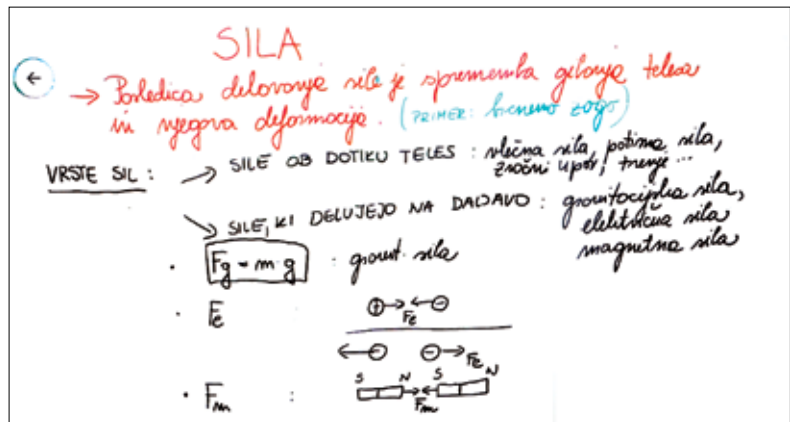 SILA
→ Posledica delovanja sile je sprememba gibanja telesa
in njegova deformacija. (PRIMER: brcnemo žogo)
VRSTE SIL : → SILE OB DOTIKU TELES : vlečna sila, potisna sila,
zračni upor, trenje ...
→ SILE, KI DELUJEJO NA DALJAVO : gravitacijska sila,
električna sila
magnetna sila
· Fg = m·g : gravit. sila
· Fe ⊕→ ←⊖
Fe
←⊖ ⊖→ Fe
· Fm : S N → ← S N
Fm